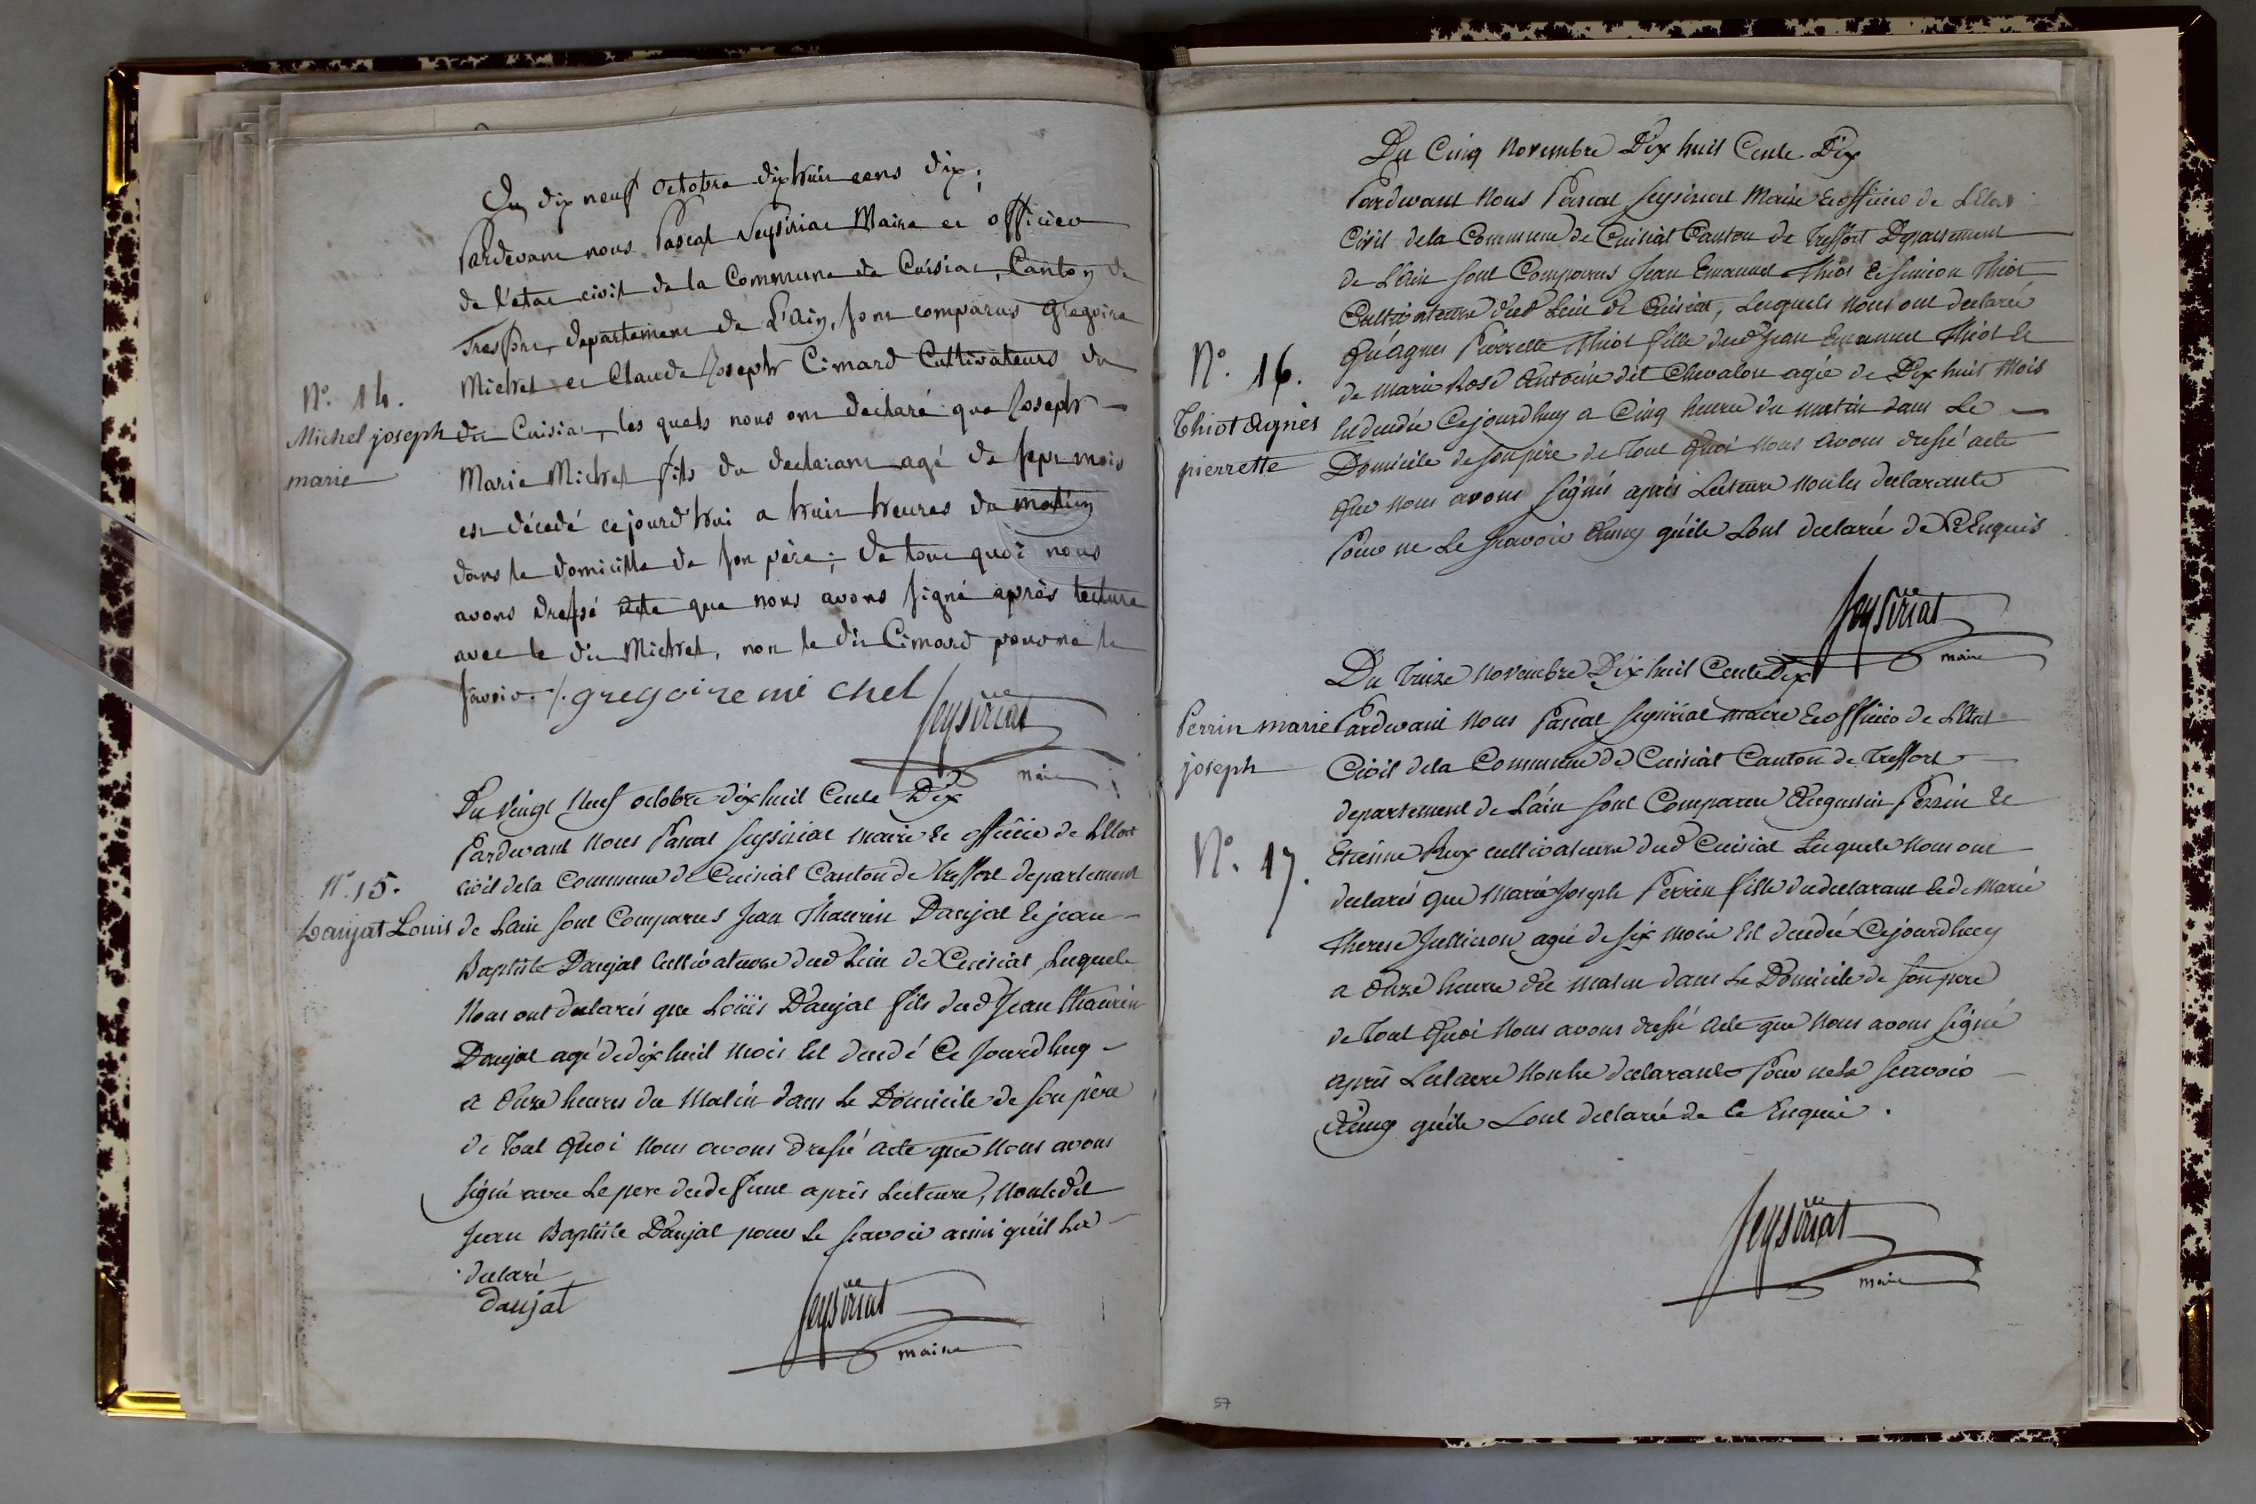 Du dix neuf octobre dix huit cens dix ;
Pardevant nous Pascal Seysiriat Maire et officier
de l'etat civil de la Commune de Cuisiat, Canton de
Treffort, departement de L'ain, sont comparus gregoire
N° 14.
Michel joseph
marie
Michel et Claude Joseph Cimard Cultivateurs du
dit Cuisiat, les quels nous ont declaré que Joseph
Marie Michel fils du declarant agé de sept mois
est décédé cejourd'hui a huit heures du matin
dans le domicille de son père ; de tout quoi nous
avons dressé acte que nous avons signé après lecture
avec le dit Michel, non le dit Cimard pour ne le
savoir ./. gregoire mi chel
Seysiriat
maire
Du vingt Neuf octobre dix huit Cents Dix
Pardevant Nous Pascal Seysiriat maire et officier de L'Etat
N° 15.
Daujat Louis
civil dela Commune de Cuisiat Canton de Treffort departement
de Lain sont Comparus Jean Thaurin Daujat et jean
Baptiste Daujat Cultivateurs dud Lieu de Cuisiat, Lesquels
Nous ont declarés que Loüis Daujat fils dud Jean Thaurin
Daujat agé de dix huit mois Est decedé Ce Jourdhuy
a Onze heures du Matin dans Le Domicile de son père
de Tout Quoi Nous avons dressé acte que Nous avons
signé avec Le pere du defunt après Lecture, Non ledit
Jean Baptiste Daujat pour Le scavoir ainsi qu'il La
declaré
daujat
Seysiriat
maire
Du Cinq Novembre Dix huit Cents Dix
Pardevant Nous Pascal Seysiriat Maire et officier de L'Etat
Civil dela Commune de Cuisiat Canton de Treffort Departement
de L'ain sont Comparus Jean Emanuel Thiot et Simeon Thiot
Cultivateurs dud Lieu de Cuisiat, Lesquels Nous ont declaré
N° 16.
Thiot Agnès
pierrette
Qu'Agnes Pierrette Thiot fille dud Jean Emanuel Thiot et
de Marie Rose Antoine dit Chevalon agée de Dix huit Mois
Est decedée Cejourdhuy a Cinq heures du matin dans Le
Domicile de son père de Tout Quoi Nous avons dressé acte
Que Nous avons signés après Lecture Non les declarants
Pour ne Le scavoir Ainsy qu'ils Lont declaré de Ce Enquis
Seysiriat
maire
Du Treize Novembre Dix huit Cents Dix
Perrin marie
joseph
N°. 17.
Pardevant Nous Pascal Seysiriat maire et officier de L'Etat
Civil dela Commune de Cuisiat Canton de Treffort
departement de Lain sont Comparus Augustin Perrin et
Etienne Rux cultivateurs dud Cuisiat Lesquels Nous ont
declarés que Marie Joseph Perrin fille du declarant et de Marie
Therese Jullieron agée de six mois Est decedée Cejourdhuy
a Onze heures du matin dans Le Domicile de son pere
de Tout Quoi Nous avons dressé acte que Nous avons signé
après Lecture Non les declarants Pour ne Le scavoir
Ainsy qu'ils Lont declaré de Ce Enquis.
Seysiriat
maire
57